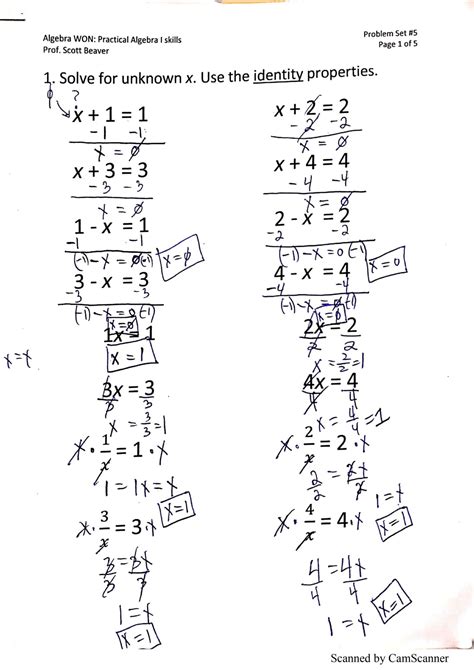 Algebra WON: Practical Algebra I skills
Prof. Scott Beaver
Problem Set #5
Page 1 of 5
1. Solve for unknown x. Use the identity properties.
?
x + 1 = 1
-1 -1
x = ∅
x + 3 = 3
-3 -3
x = ∅
1 - x = 1
-1 -1
(-1)-x = ∅(-1) x=∅
3 - x = 3
-3 -3
(-1)-x = 0(-1)
x=∅
1x = 1
x = 1
x=x
3x = 3
3 3
x = 3/3 = 1
x · 1/x = 1 · x
1 = 1x = x
x=1
x · 3/x = 3 · x
3 = 3x
3 3
1 = x
x=1
x + 2 = 2
-2 -2
x = ∅
x + 4 = 4
-4 -4
x = ∅
2 - x = 2
-2 -2
(-1)-x = 0(-1) x=0
4 - x = 4
-4 -4
(-1)-x = ∅(-1)
x=∅
2x = 2
2 2
x = 2/2 = 1
4x = 4
4 4
x = 4/4 = 1
x · 2/x = 2 · x
2 = 2x
2 2
1 = x
x=1
x · 4/x = 4 · x
4 = 4x
4 4
1 = x
x=1
Scanned by CamScanner